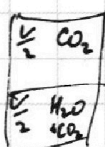 V/2 CO₂
V/2 H₂O
+CO₂